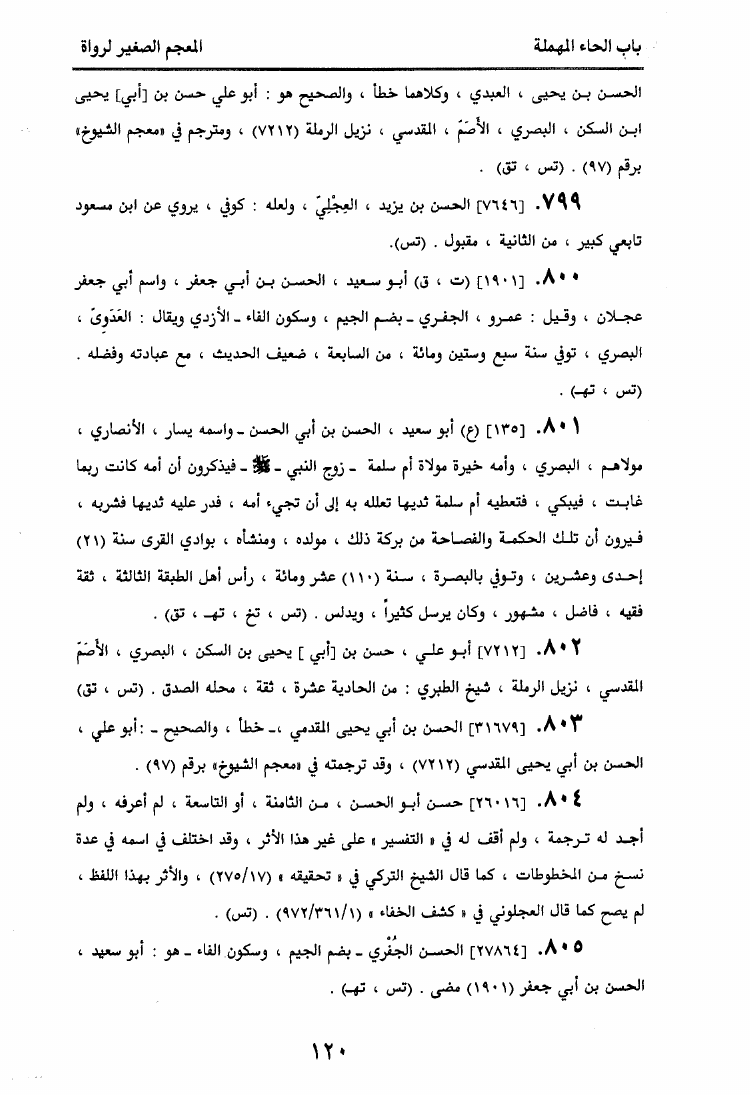 باب الحاء المهملة
المعجم الصغير لرواة
الحسن بن يحيى ، العبدي ، وكلاهما خطأ ، والصحيح هو : أبو علي حسن بن [أبي] يحيى
ابن السكن ، البصري ، الأَصَمّ ، المقدسي ، نزيل الرملة (٧٢١٢) ، ومترجم في «معجم الشيوخ»
برقم (٩٧) . (تس ، تق) .
٧٩٩. [٧٦٤٦] الحسن بن يزيد ، العِجْلِيّ ، ولعله : كوفي ، يروي عن ابن مسعود
تابعي كبير ، من الثانية ، مقبول . (تس).
٨٠٠. [١٩٠١] (ت ، ق) أبو سعيد ، الحسن بن أبي جعفر ، واسم أبي جعفر
عجلان ، وقيل : عمرو ، الجفري ـ بضم الجيم ، وسكون الفاء ـ الأزدي ويقال : العَدَوِيّ ،
البصري ، توفي سنة سبع وستين ومائة ، من السابعة ، ضعيف الحديث ، مع عبادته وفضله .
(تس ، تهـ) .
٨٠١. [١٣٥] (ع) أبو سعيد ، الحسن بن أبي الحسن ـ واسمه يسار ، الأنصاري ،
مولاهم ، البصري ، وأمه خيرة مولاة أم سلمة ـ زوج النبي ـ ﷺ ـ فيذكرون أن أمه كانت ربما
غابت ، فيبكي ، فتعطيه أم سلمة ثديها تعلله به إلى أن تجيء أمه ، فدر عليه ثديها فشربه ،
فيرون أن تلك الحكمة والفصاحة من بركة ذلك ، مولده ، ومنشأه ، بوادي القرى سنة (٢١)
إحدى وعشرين ، وتوفي بالبصرة ، سنة (١١٠) عشر ومائة ، رأس أهل الطبقة الثالثة ، ثقة
فقيه ، فاضل ، مشهور ، وكان يرسل كثيراً ، ويدلس . (تس ، تخ ، تهـ ، تق) .
٨٠٢. [٧٢١٢] أبو علي ، حسن بن [أبي ] يحيى بن السكن ، البصري ، الأَصَمّ
المقدسي ، نزيل الرملة ، شيخ الطبري : من الحادية عشرة ، ثقة ، محله الصدق . (تس ، تق)
٨٠٣. [٣١٦٧٩] الحسن بن أبي يحيى المقدمي ،ـ خطأ ، والصحيح ـ :أبو علي ،
الحسن بن أبي يحيى المقدسي (٧٢١٢) ، وقد ترجمته في «معجم الشيوخ» برقم (٩٧) .
٨٠٤. [٢٦٠١٦] حسن أبو الحسن ، من الثامنة ، أو التاسعة ، لم أعرفه ، ولم
أجد له ترجمة ، ولم أقف له في « التفسير » على غير هذا الأثر ، وقد اختلف في اسمه في عدة
نسخ من المخطوطات ، كما قال الشيخ التركي في « تحقيقه » (٢٧٥/١٧) ، والأثر بهذا اللفظ ،
لم يصح كما قال العجلوني في « كشف الخفاء » (٩٧٢/٣٦١/١) . (تس) .
٨٠٥. [٢٧٨٦٤] الحسن الجُفْري ـ بضم الجيم ، وسكون الفاء ـ هو : أبو سعيد ،
الحسن بن أبي جعفر (١٩٠١) مضى . (تس ، تهـ) .
١٢٠